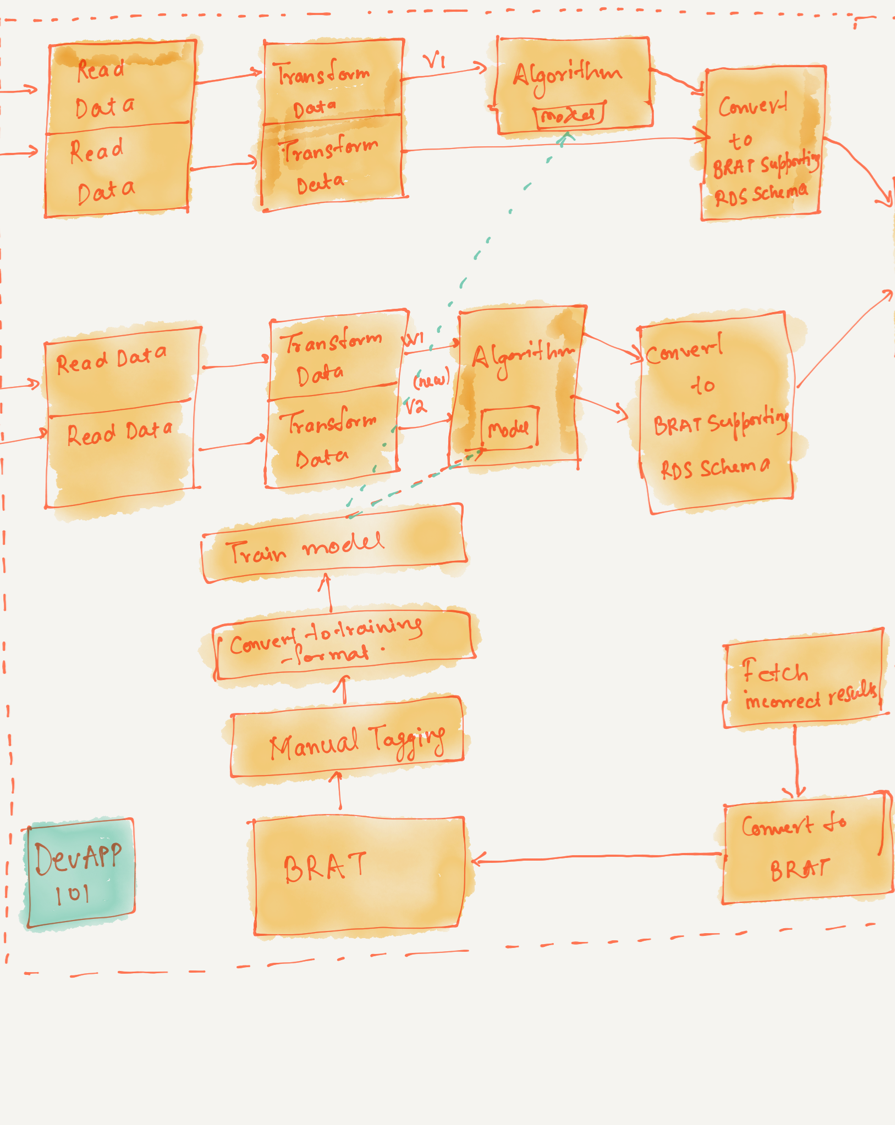 Read
Data
Read
Data
Transform
Data
Transform
Data
V1
Algorithm
Model
Convert
to
BRAT Supporting
RDS Schema
Read Data
Read Data
Transform
Data
Transform
Data
V1
(new)
V2
Algorithm
Model
Convert
to
BRAT Supporting
RDS Schema
Train model
Convert-to-training
-format.
Manual Tagging
BRAT
Fetch
incorrect results
Convert to
BRAT
DevAPP
101